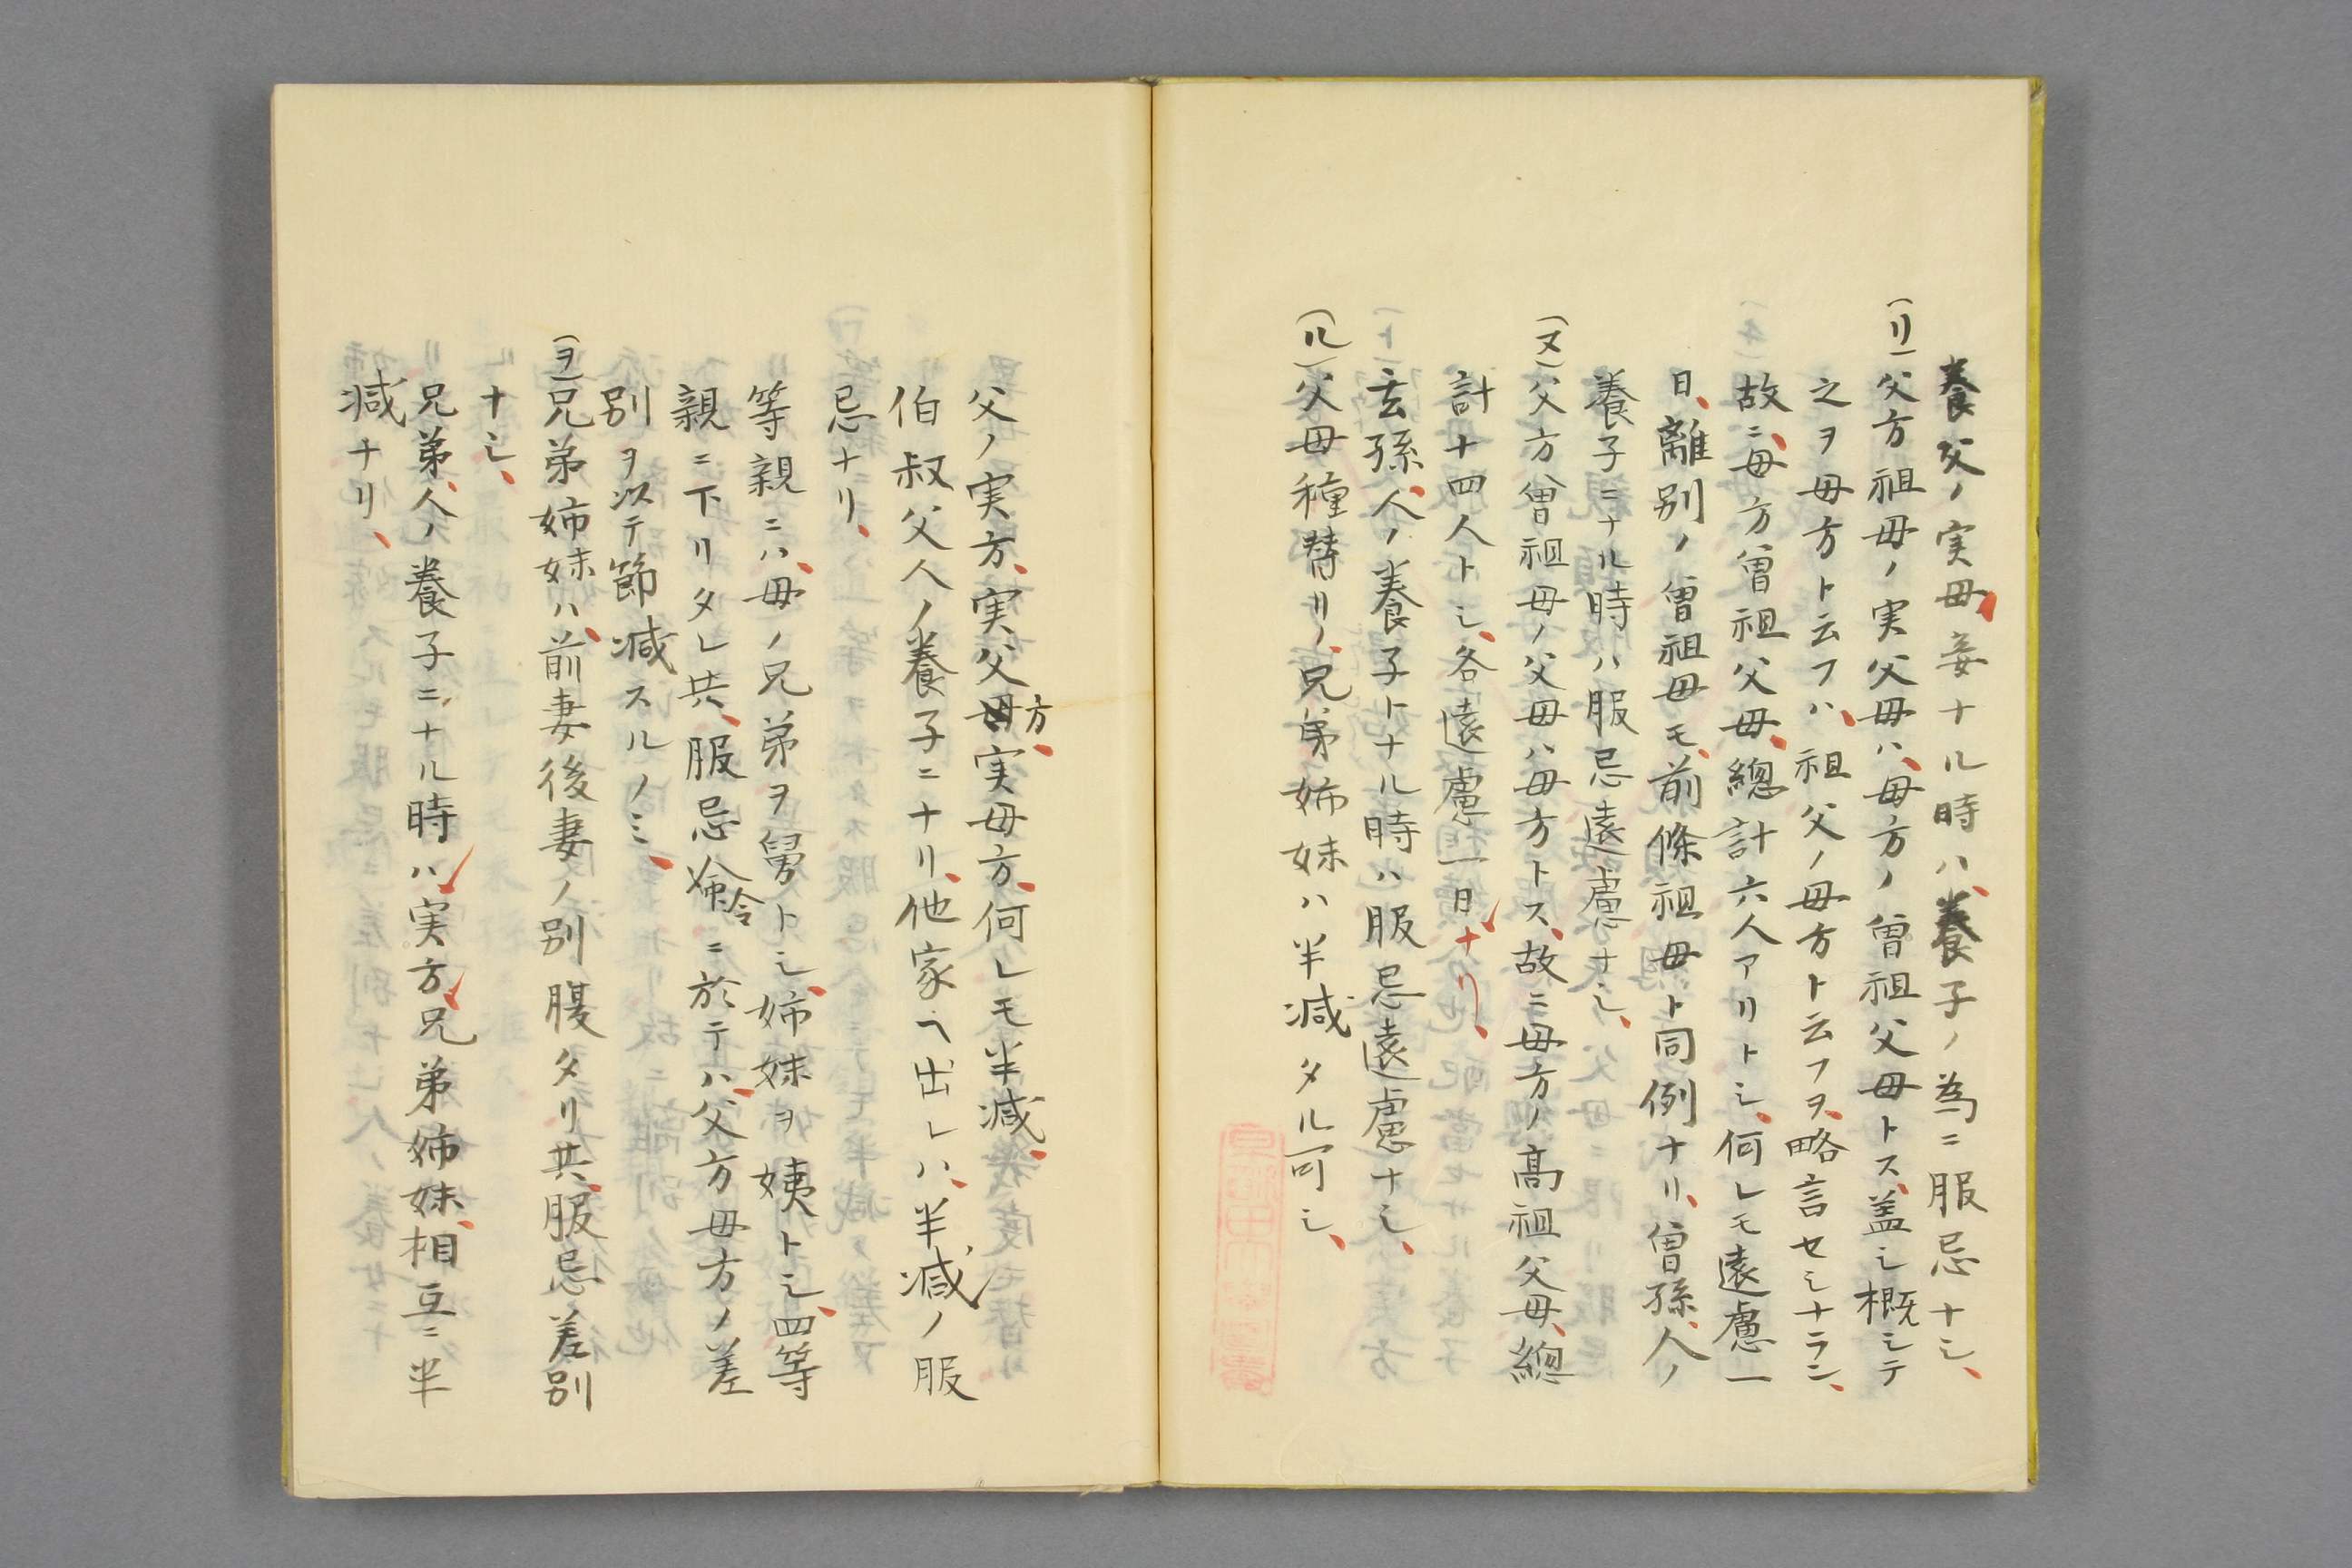 養父ノ実母、妾ナル時ハ、養子ノ為ニ服忌ナシ、
(リ)父方祖母ノ実父母ハ、母方ノ曽祖父母トス、盖シ概シテ
之ヲ母方ト云フハ、祖父ノ母方ト云フヲ、略言セシナラン、
故ニ、母方曽祖父母、總計六人アリトシ、何レモ遠慮一
日、離別ノ曽祖母モ、前條祖母ト同例ナリ、曽孫、人ノ
養子ニナル時ハ服忌遠慮ナシ、
(ヌ)父方曽祖母ノ父母ハ母方トス、故ニ母方ノ高祖父母、總
計十四人トシ、各遠慮一日ナリ、
玄孫、人ノ養子トナル時ハ服忌遠慮ナシ、
(ル)父母種替リノ、兄弟姉妹ハ半減タル可シ、
父ノ実方、実父方、実母方、何レモ半減、
伯叔父人ノ養子ニナリ、他家ヘ出レハ、半減ノ服
忌ナリ、
等親ニハ、母ノ兄弟ヲ舅トシ、姉妹ヲ姨トシ、四等
親ニ下リタレ共、服忌令ニ於テハ、父方母方ノ差
別ヲ以テ節減スルノミ、
(ヲ)兄弟姉妹ハ、前妻後妻ノ別腹タリ共、服忌差別
ナシ、
兄弟、人ノ養子ニナル時ハ、実方、兄弟姉妹、相互ニ半
減ナリ、